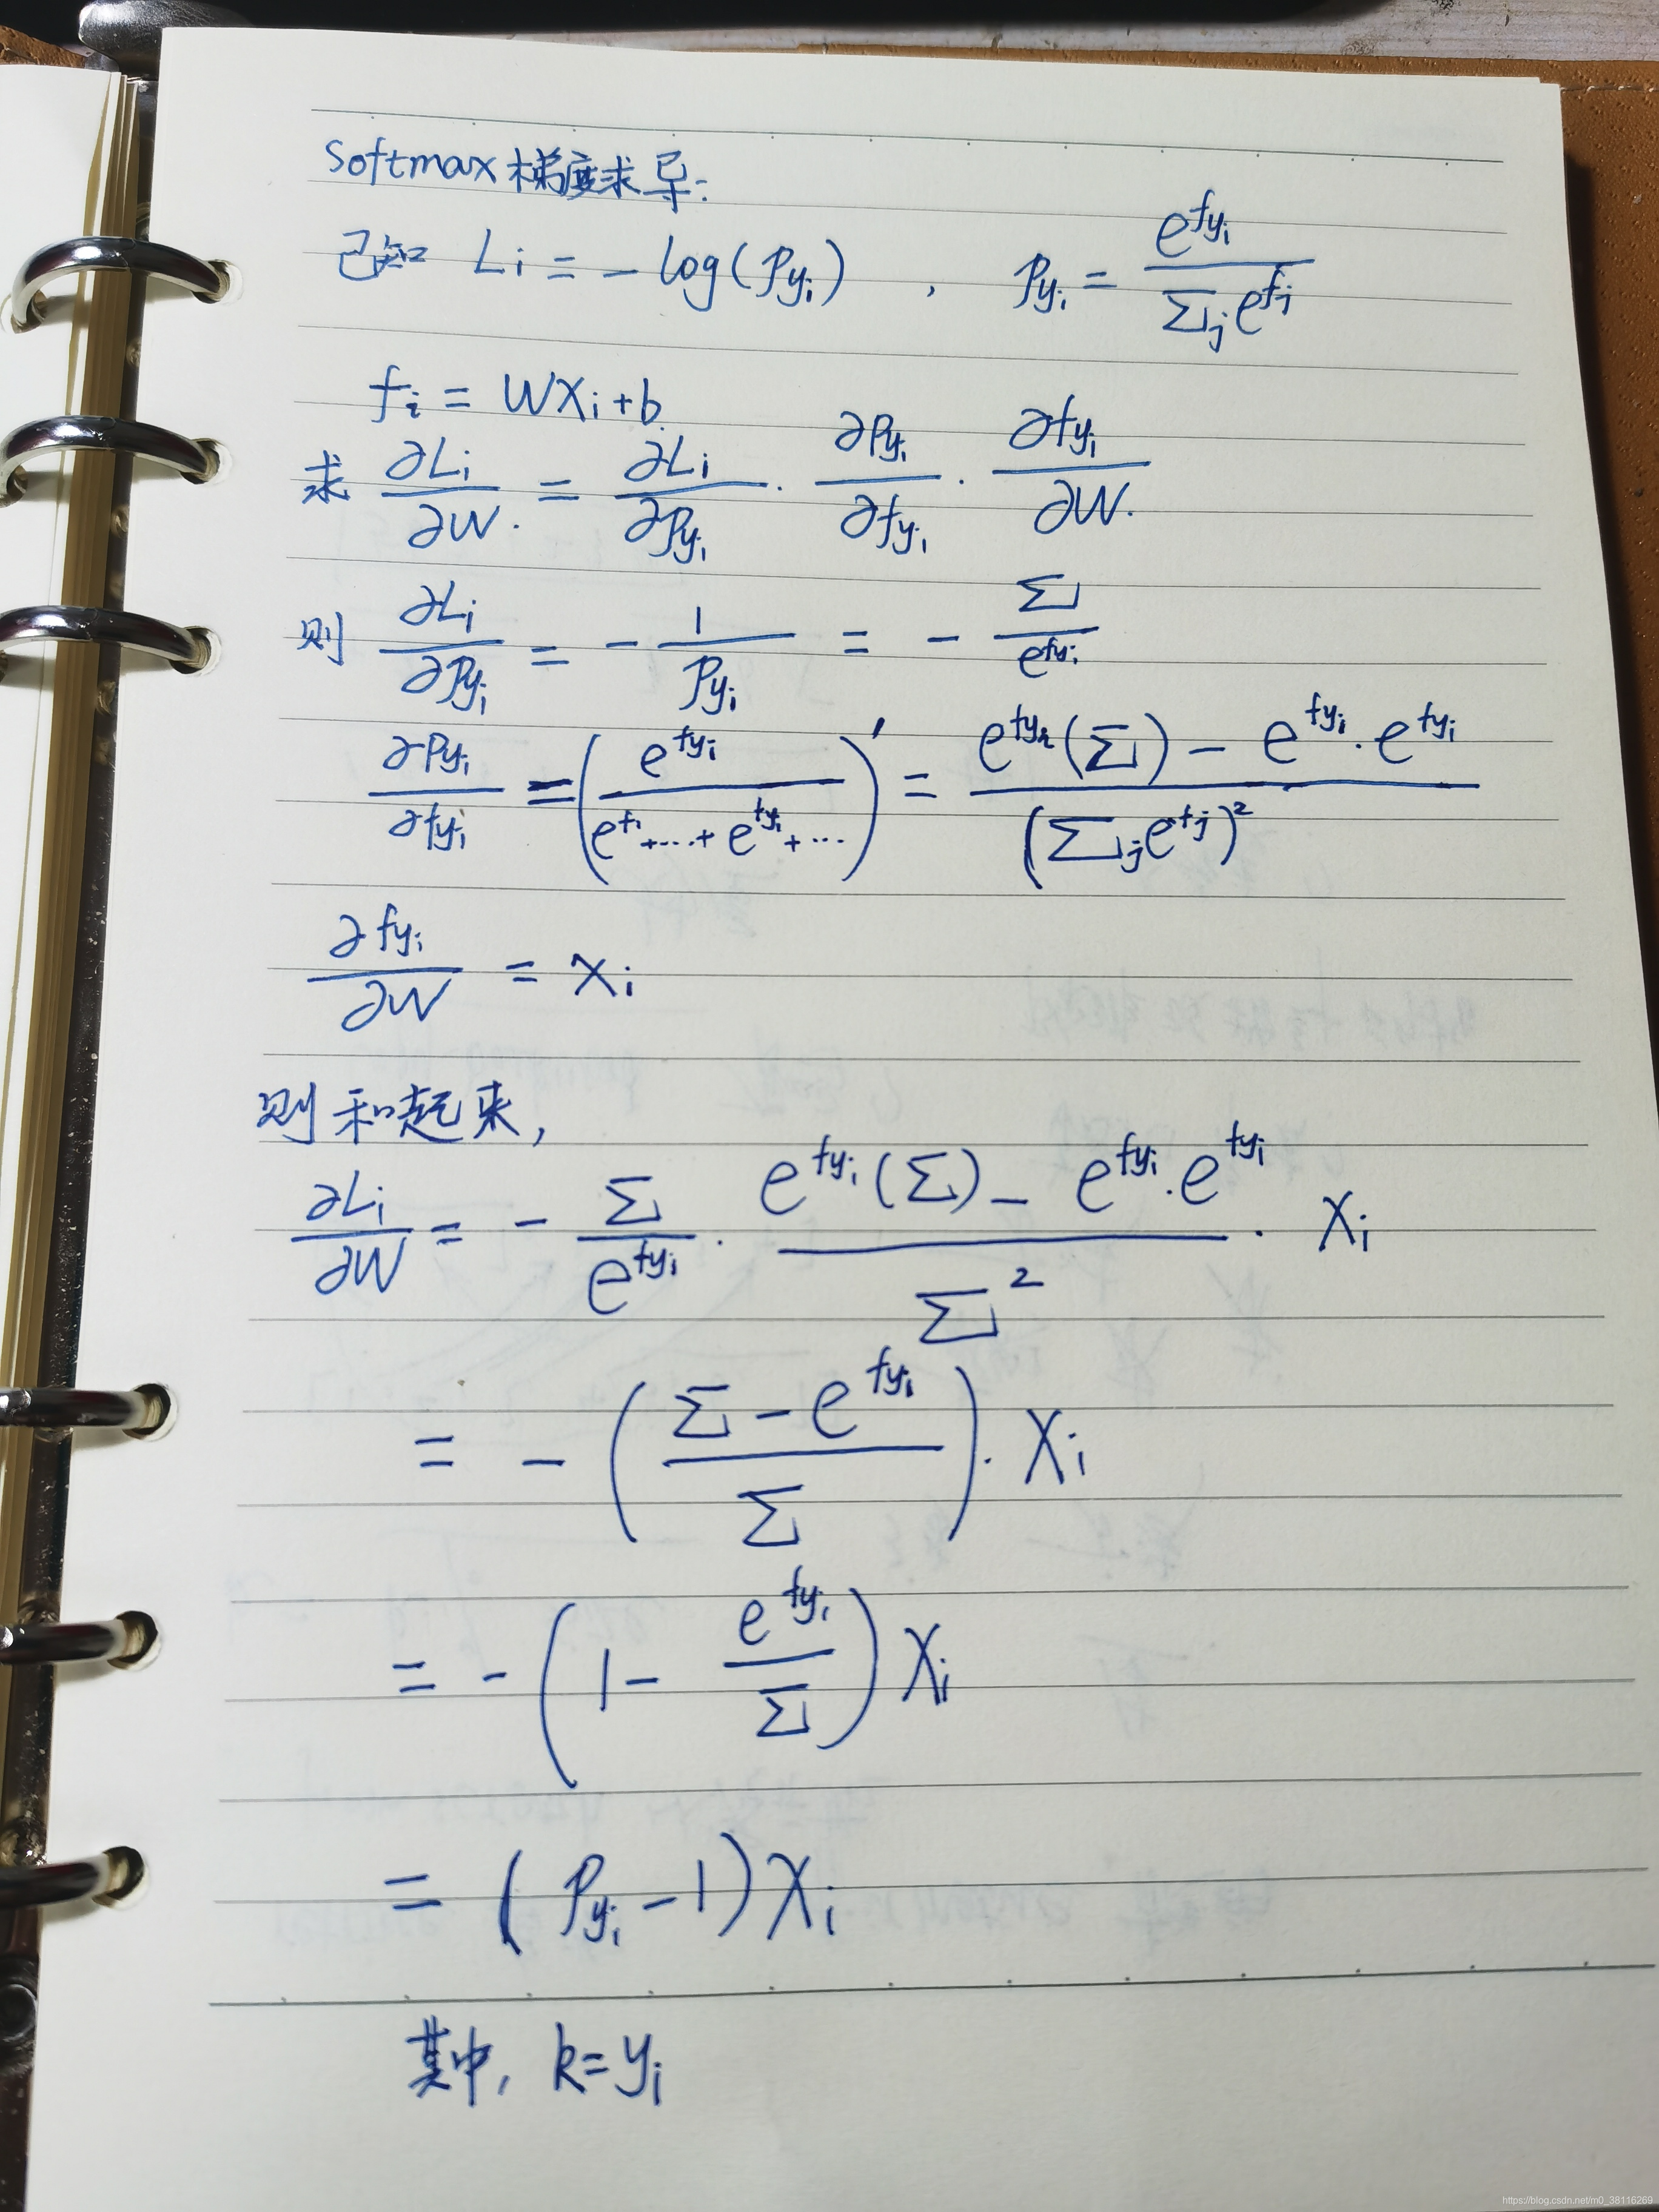 Softmax 梯度求导:
已知 Li = - log(Pyi) , Pyi = e^fyi / Σj e^fj
fi = WXi+b.
求 ∂Li/∂W. = ∂Li/∂Pyi · ∂Pyi/∂fyi · ∂fyi/∂W.
则 ∂Li/∂Pyi = - 1/Pyi = - Σ/e^fyi
∂Pyi/∂fyi = (e^fyi / (e^f1+...+e^fyi+...))' = (e^fyi(Σ) - e^fyi · e^fyi) / (Σj e^fj)^2
∂fyi/∂W = Xi
则和起来,
∂Li/∂W = - Σ/e^fyi · (e^fyi(Σ) - e^fyi · e^fyi) / Σ^2 · Xi
= - ((Σ - e^fyi) / Σ) · Xi
= - (1 - e^fyi/Σ) Xi
= (Pyi - 1) Xi
其中, k=yi
https://blog.csdn.net/m0_38116269